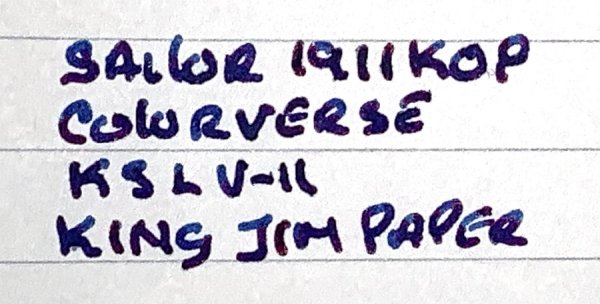 SAILOR 1911 KOP
COLORVERSE
KSLV-II
KING JIM PAPER